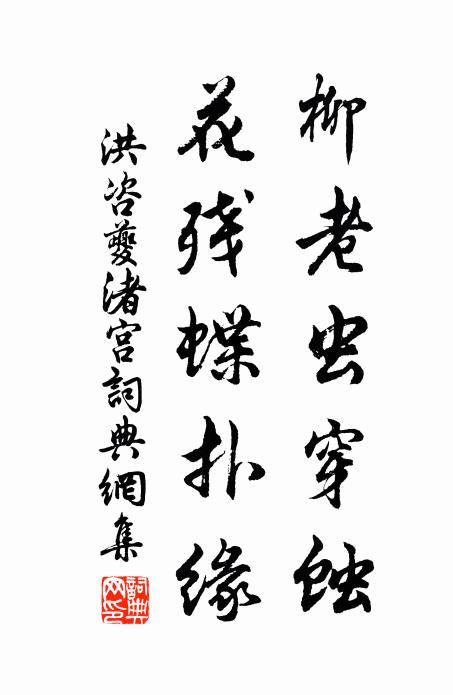 柳老虫穿蚀
花残蝶扑缘
洪咨夔渚宫詞典網集
詞典网印